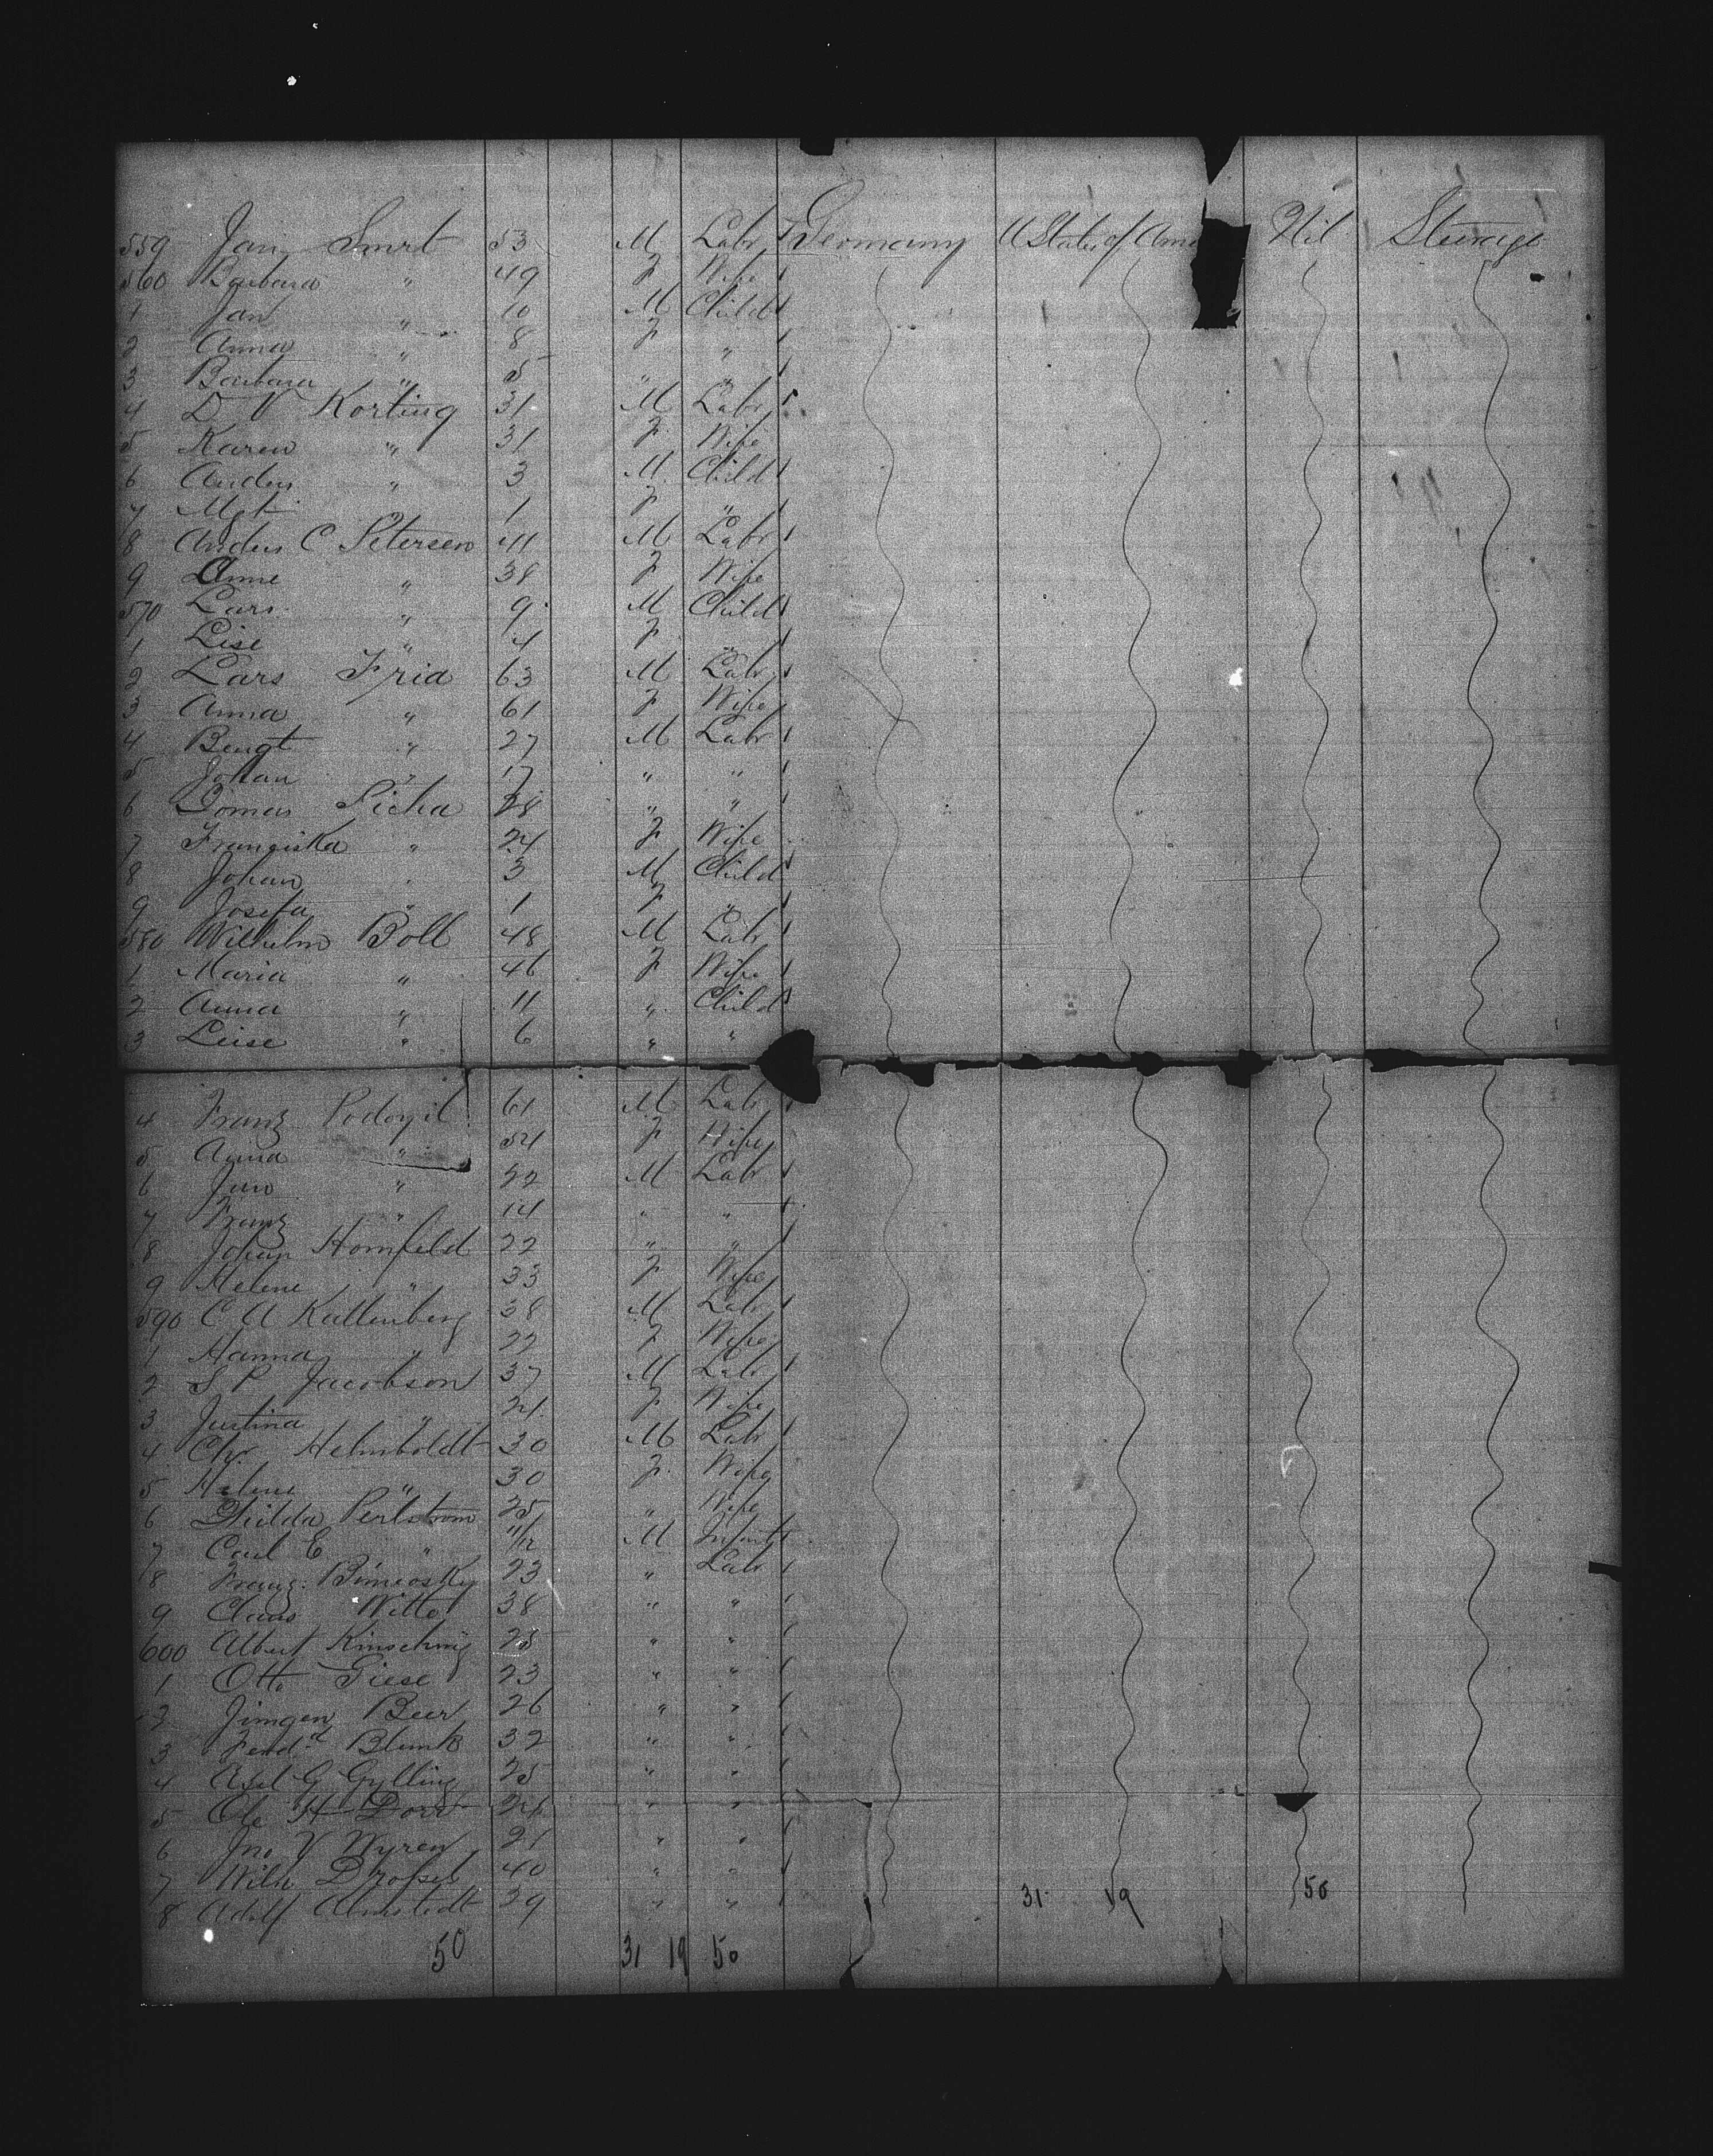 559 Jan Smrt 53 M Labr Germany U States of Ame Nil Steerage
560 Barbara " 49 F Wife
1 Jan " 10 M Child
2 Anna " 8 F "
3 Barbara " 5 " "
4 D V Korting 31 M Labr
5 Karen " 31 F Wife
6 Anders " 3 M Child
7 Mgt " 1 F "
8 Anders C Petersen 41 M Labr
9 Anne " 38 F Wife
570 Lars " 9 M Child
1 Lise " 4 F "
2 Lars Frid 63 M Labr
3 Anna " 61 F Wife
4 Bengt " 27 M Labr
5 Johan " 17 " "
6 Tomas Sicha 28 " "
7 Franziska " 24 F Wife
8 Johan " 3 M Child
9 Josefa " 1 F "
580 Wilhelm Boll 48 M Labr
1 Maria " 46 F Wife
2 Anna " 11 " Child
3 Leise " 6 " "
4 Franz 61 M Labr
5 Anna " 54 F Wife
6 Jan " 22 M Labr
7 Franz " 14 " "
8 Johan Homfeld 22 " "
9 Helene " 33 F Wife
590 C A Kallenberg 38 M Labr
1 Hanna " 22 F Wife
2 S P Jacobson 37 M Labr
3 Justina " 21 F Wife
4 Chr. Helmboldt 30 M Labr
5 Helene " 30 F Wife
6 Perlstrom 25 " Wife
7 Carl E " 11/12 M Infant
8 Franz 23 " Labr
9 Claus Witte 38 " "
600 Albert 25 " "
1 Otto Giese 23 " "
2 Beer 26 " "
3 Ferd. Blunk 32 " "
4 Axel G Gylling 25 " "
5 Ole H 24 " "
6 Jno Y Nyren 21 " "
7 Wilh 40 " "
8 Adolf Almstedt 29 " "
31 19 50
50 31 19 50